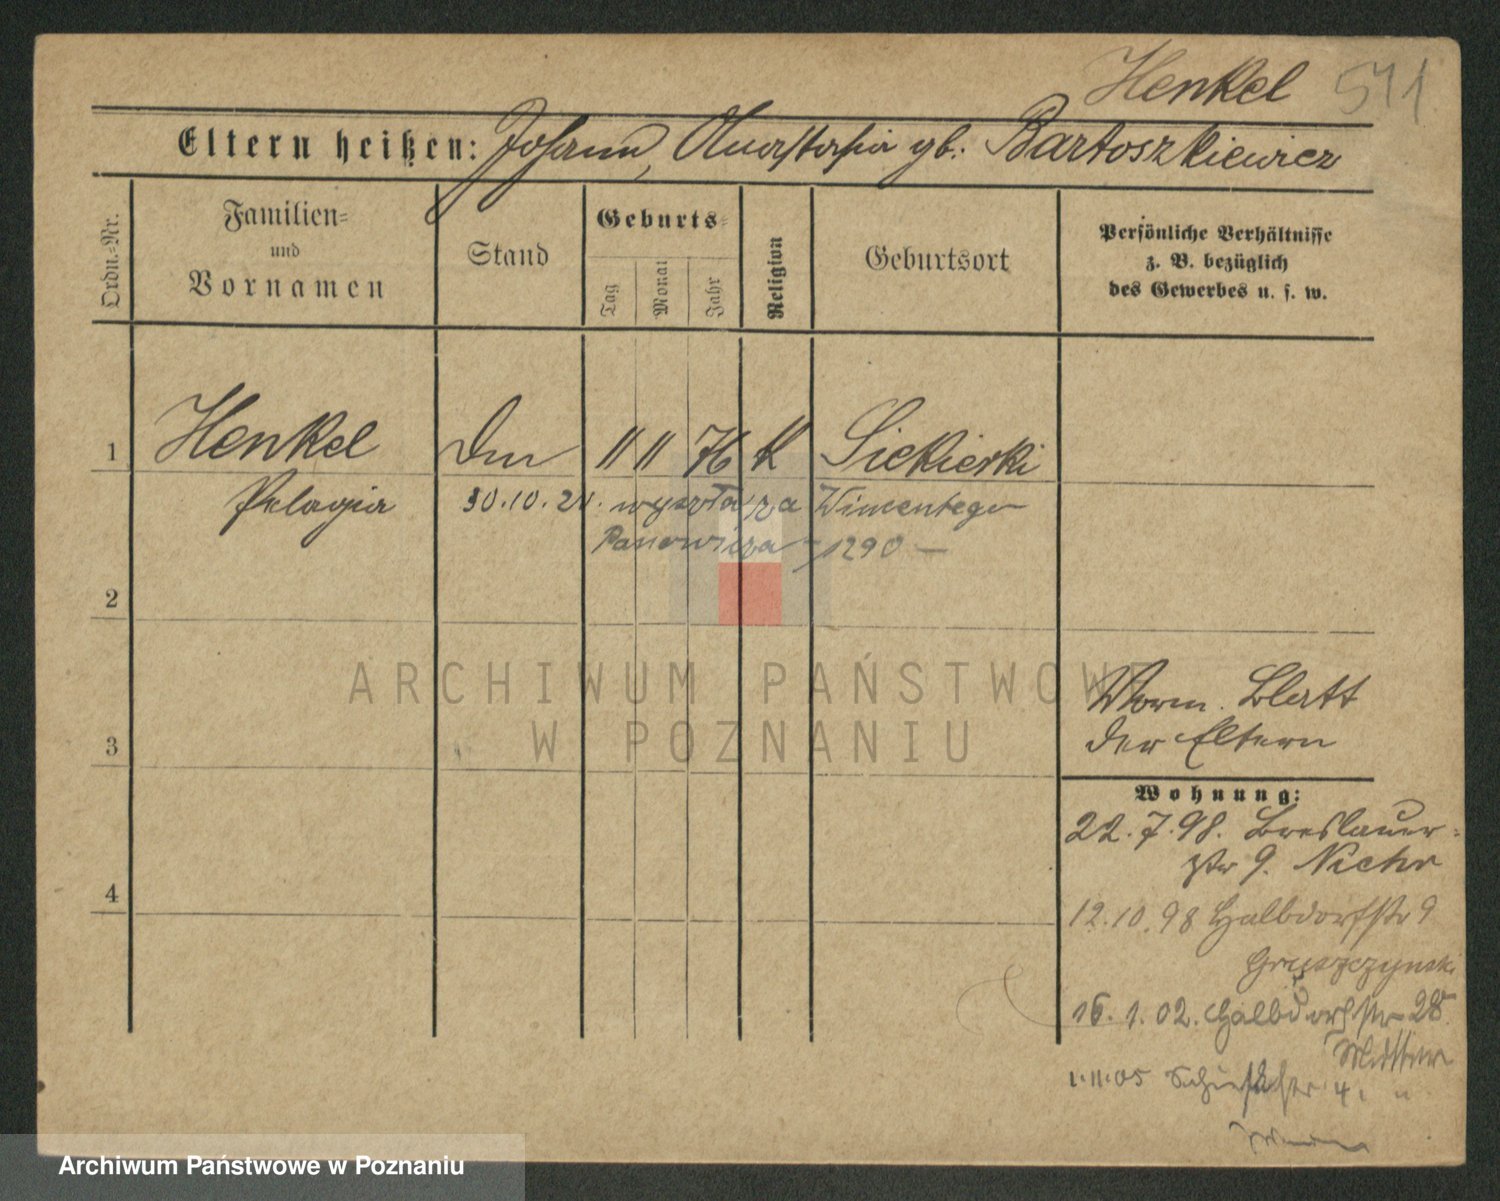 Henkel 541
Eltern heißen: Johann, Anastasia gb. Bartoszkiewicz
Ordn.=Nr.
Familien=
und
Vornamen
Stand
Geburts=
Tag
Monat
Jahr
Religion
Geburtsort
Persönliche Verhältnisse
z. B. bezüglich
des Gewerbes u. s. w.
1 Henkel 11 11 76 K Siekierki
Pelagia 30.10.21. wyszła za Wincentego
Panowicza 1290 —
2
3
4
ARCHIWUM PAŃSTWOWE
W POZNANIU
Vorm. Blatt
der Eltern
Wohnung:
22.7.98. Breslauer=
str 9.
12.10.98 Halbdorfstr 9
Gruszczynski
16.1.02. Halbdorfstr 28
1.11.05 4. "
Archiwum Państwowe w Poznaniu